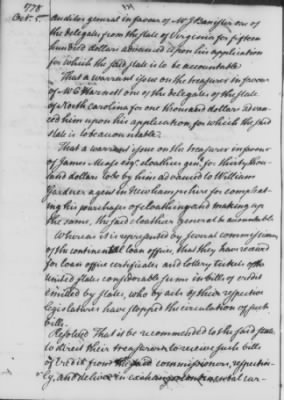 1778
Oct. 5.
auditor general in favour of Mr J Banister one of
the delegates from the state of Virginia for fifteen
hundred dollars advanced upon his application
for which the said state is to be accountable.
That a warrant issue on the treasurer in favour
of Mr C Harnett one of the delegates of the state
of North Carolina for one thousand dollars advan
ced him upon his application, for which the said
state is to be accountable.
That a warrant issue on the treasurer in favour
of James Mease esqr. cloathier genl. for thirty thou
sand dollars to be by him advanced to William
Gardner agent in New hampshire for compleating
his purchases of cloathing and making up
the same, the said cloathier general to be accountable.
Whereas it is represented by several commissioners
of the continental loan office, that they have received
for loan office certificates and lottery tickets of the
United States considerable sums in bills of credit
emitted by states, who by acts of their respective
legislatures have stopped the circulation of such
bills.
Resolved That it be recommended to the said states
to direct their treasurers to receive such bills
of credit from the said commissioners, respective
ly, and deliver in exchange continental cur-